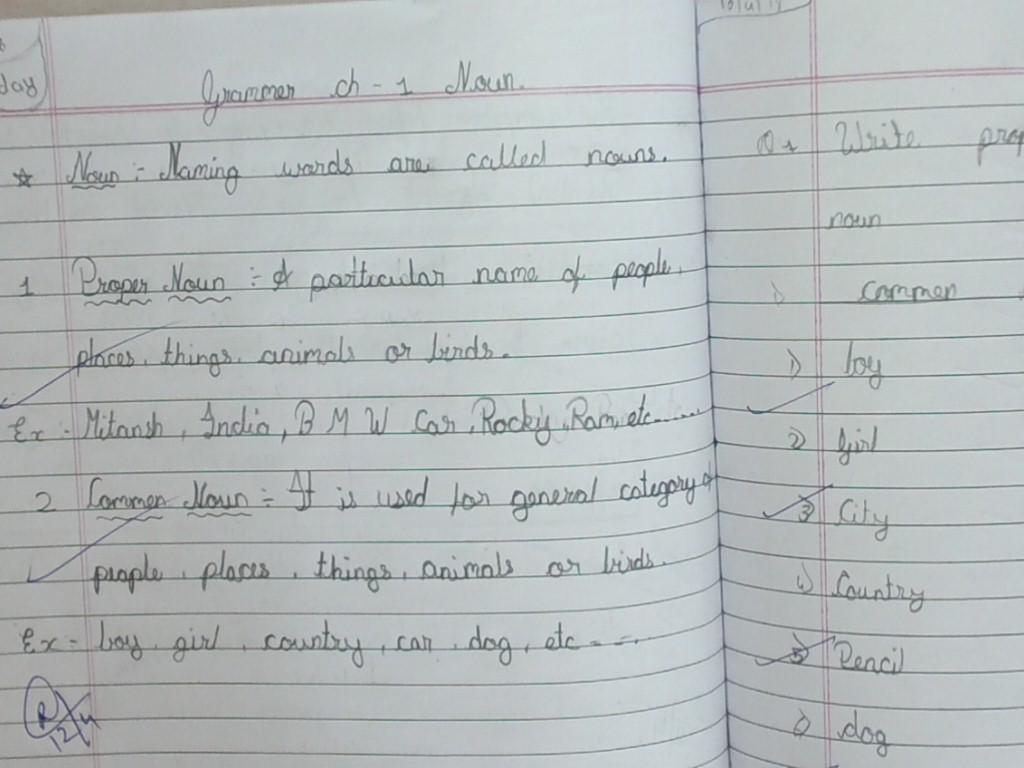 day
Grammer ch - 1 Noun.
☆ Noun :- Naming words are called nouns.
1 Proper Noun :- A particular name of people,
places, things, animals or birds.
Ex - Mitansh, India, B M W Car, Rocky, Ram, etc.......
2 Common Noun :- It is used for general category of
people, places, things, animals or birds.
Ex - boy, girl, country, car, dog, etc - - ...
Q1 Write prop
noun
common
1) boy
2) Girl
3) City
4) Country
5) Pencil
6) dog